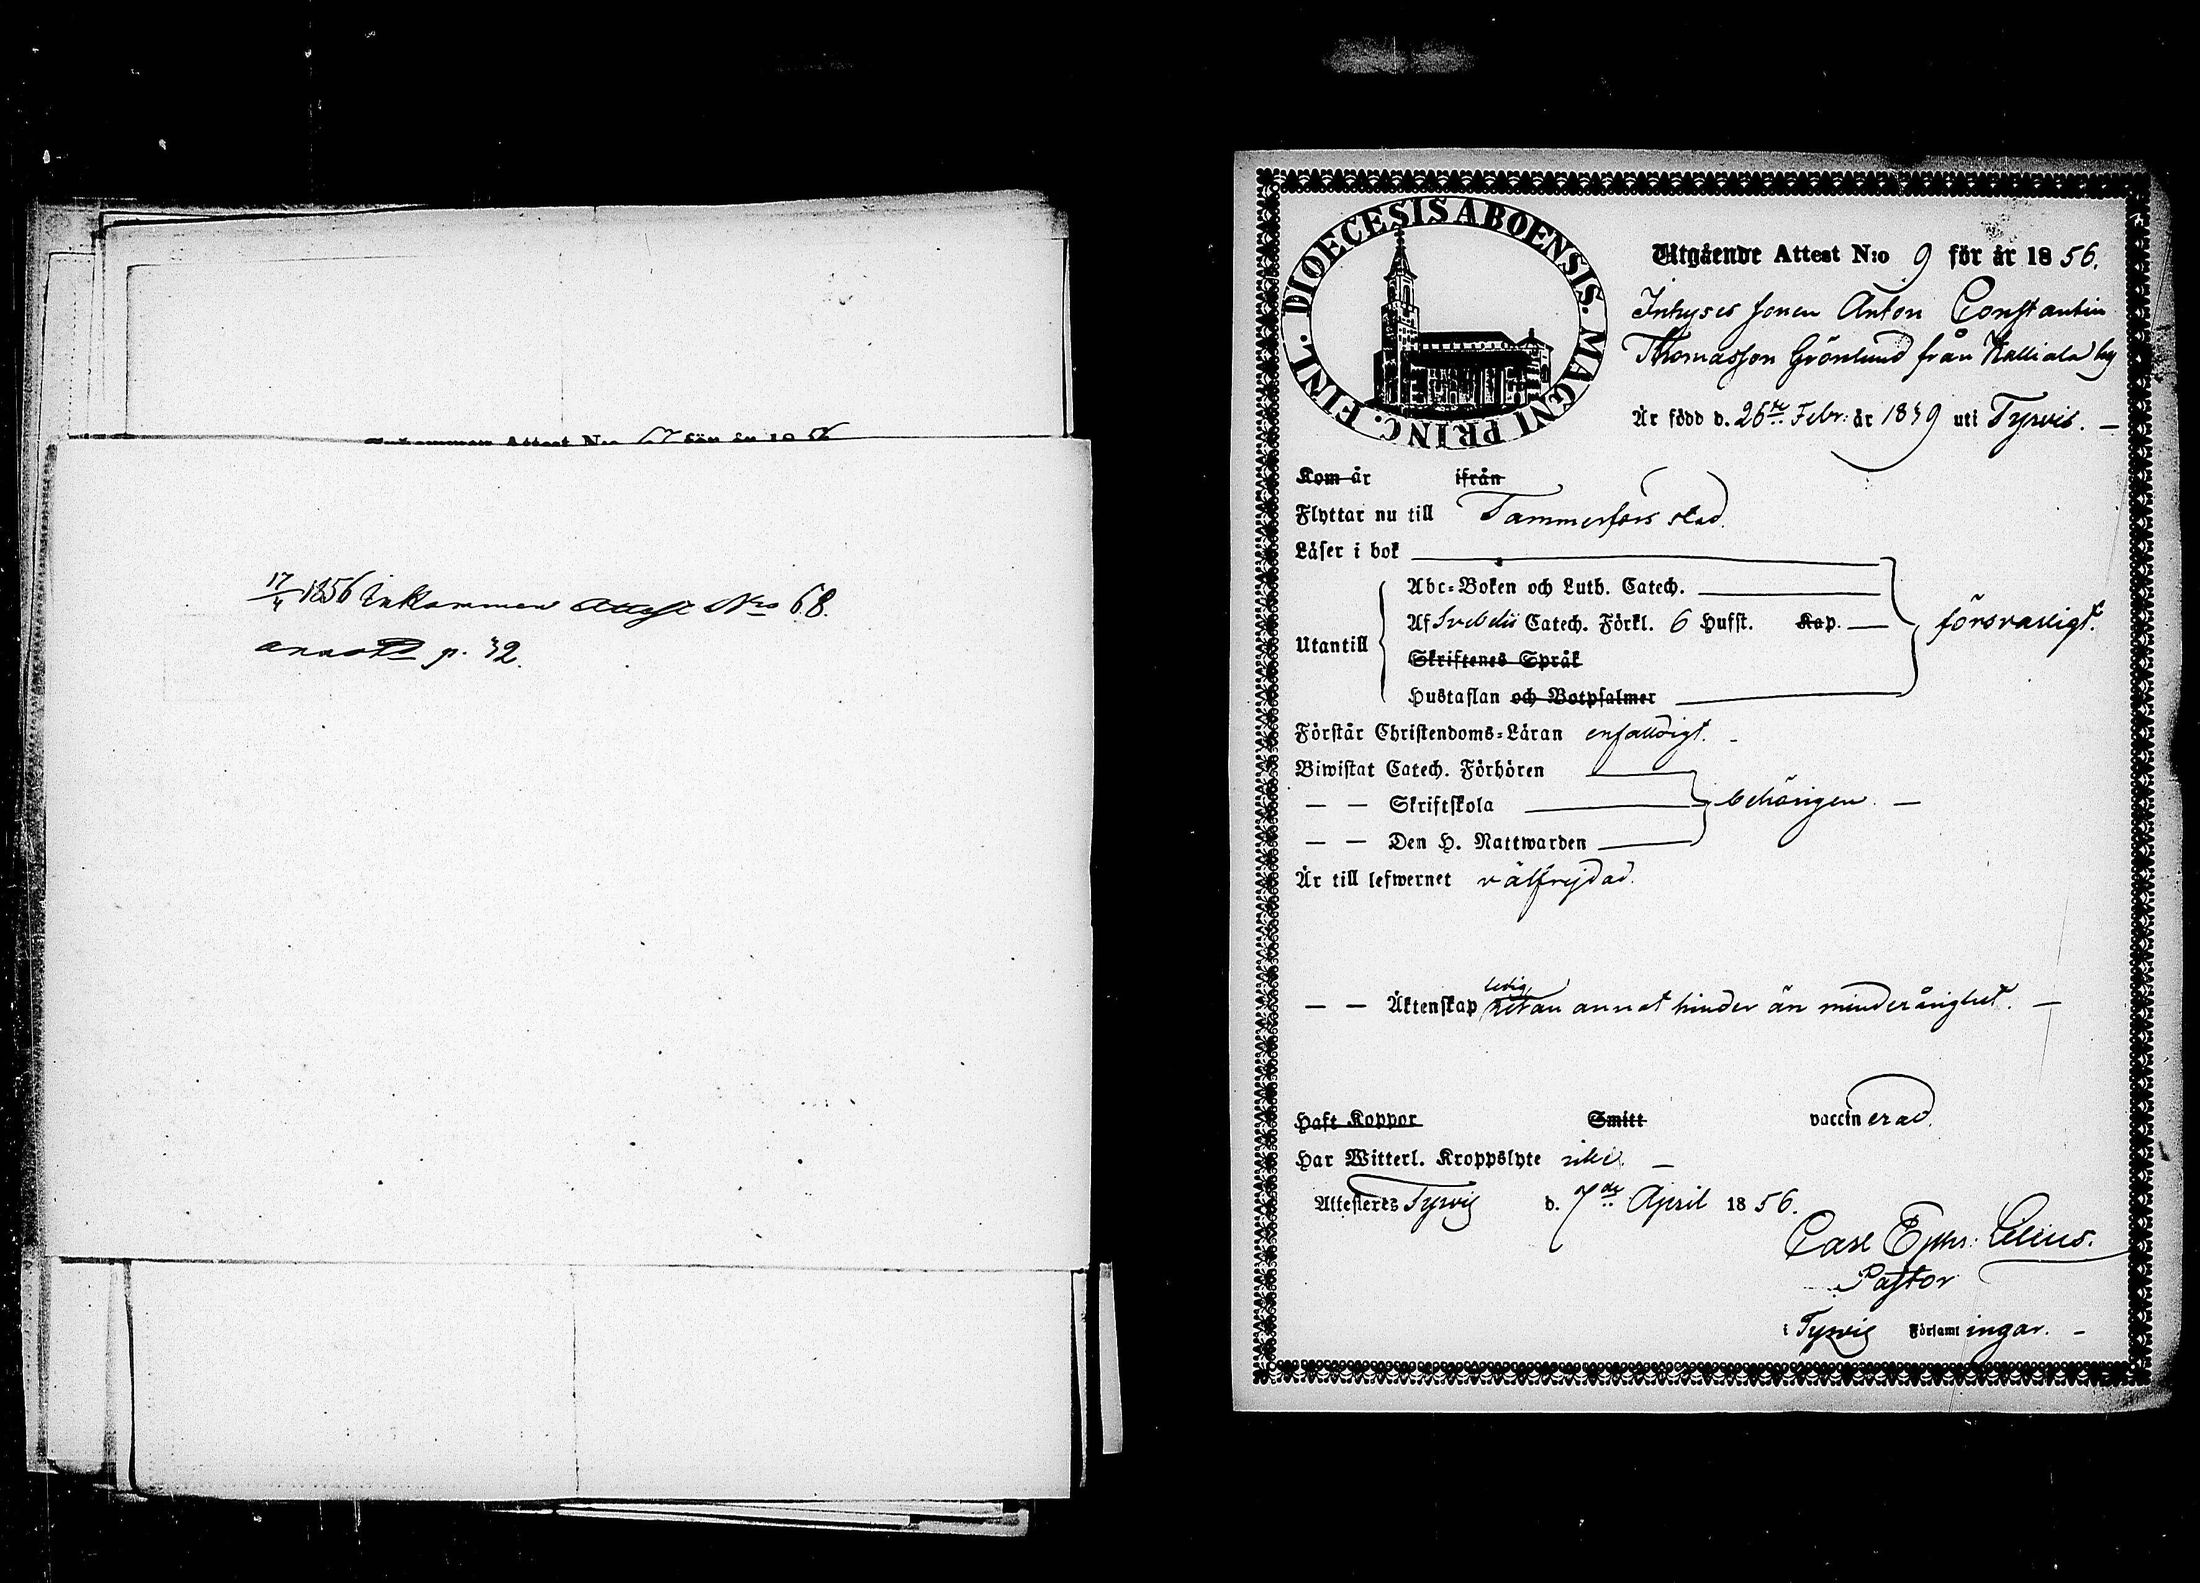 Inkommen Attest N:o 67 för år 1856
17/4 1856 Inkommen Attest Nro 68.
annoTD p. 32.
DIOECESIS ABOENSIS. MAGNI PRINC. FINL.
Utgående Attest N:o 9 för år 1856.
Inhyses sonen Anton Constantin
Thomasson Grönlund från Kalliala by
Är född d. 26te Febr: år 1839 uti Tyrvis. —
Kom år ifrån
Flyttar nu till Tammerfors stad.
Läser i bok
Abc-Boken och Luth. Catech.
Utantill
Af Svebelii Catech. Förkl. 6 Hufst. Kap. — försvarligt.
Skriftenes Språk
Hustaflan och Botpsalmer
Förstår Christendoms-Läran enfaldigt. -
Biwistat Catech. Förhören
— — Skriftskola behörigen. —
— — Den H. Nattwarden
Är till lefwernet välfrejdad.
ledig
— — Äktenskap utan annat hinder än minderårighet. —
Haft Koppor Smitt vaccinerad.
Har Witterl. Kroppslyte icke. —
Attesteres Tyrvis d. 7de April 1856.
Carl Ephr: Celius.
Pastor
i Tyrvis Församlingar. -